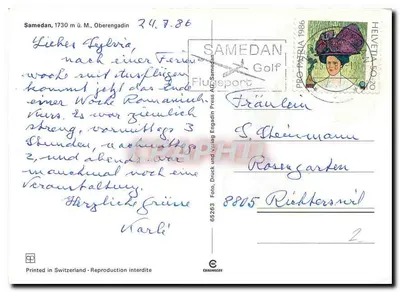 Samedan, 1730 m ü. M., Oberengadin
24.7.86
Liebes Sylvia,
nach einer Ferien-
woche mit Ausflügen
kommt jetzt das Ende
einer Woche Romanisch-
kurs. Es war ziemlich
streng, vormittags 3
Stunden, nachmittags
2, und abends war
manchmal noch eine
Veranstaltung.
Herzliche Grüsse
Karli
Printed in Switzerland - Reproduction interdite
65263 Foto, Druck und Verlag Engadin Press AG, Samedan
SAMEDAN
Golf
Flugsport
PRO PATRIA 1986
HELVETIA 50+20
Fräulein
S. Steinmann
Rosengarten
8805 Richterswil
2